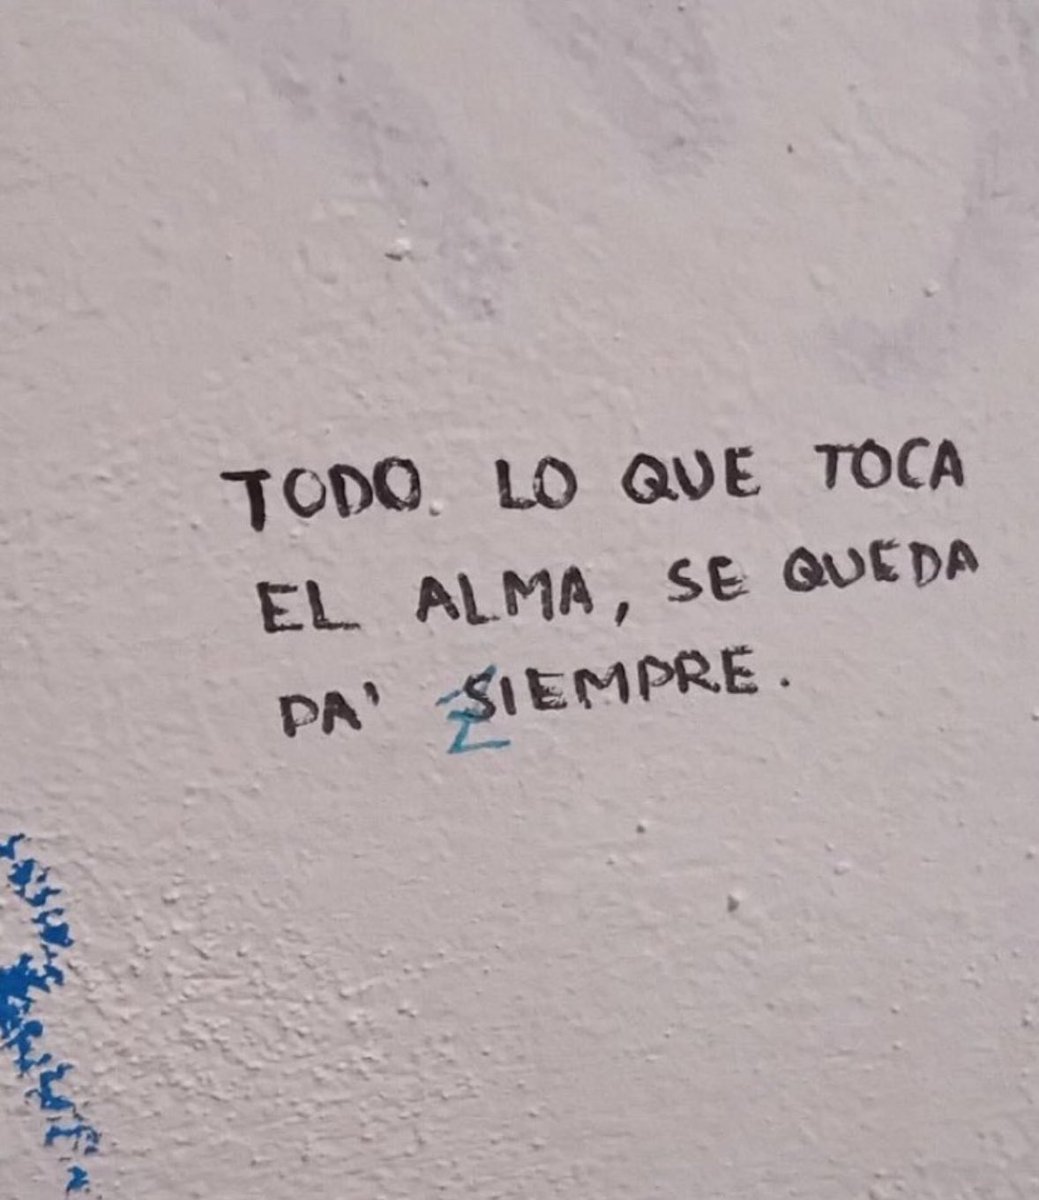 TODO LO QUE TOCA
EL ALMA, SE QUEDA
PA' SIEMPRE.